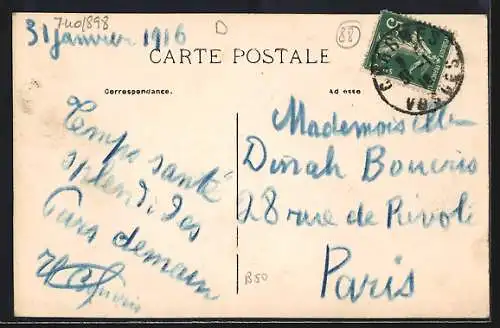 740/898
D
88
31 janvier 1916
CARTE POSTALE
5
VOSGES
Correspondance.
Adresse
Temps santé
splendides
Pars demain
Mademoiselle
Dinah
28 rue de Rivoli
Paris
B50